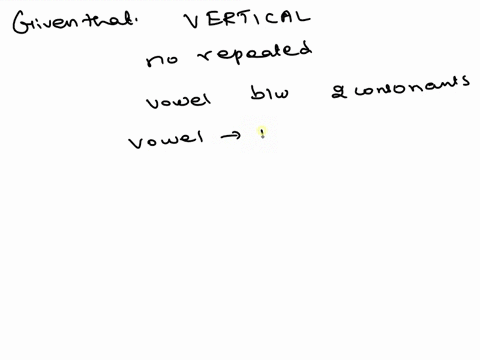 Given that. VERTICAL
no repeated
vowel b/w 2 consonants
vowel →